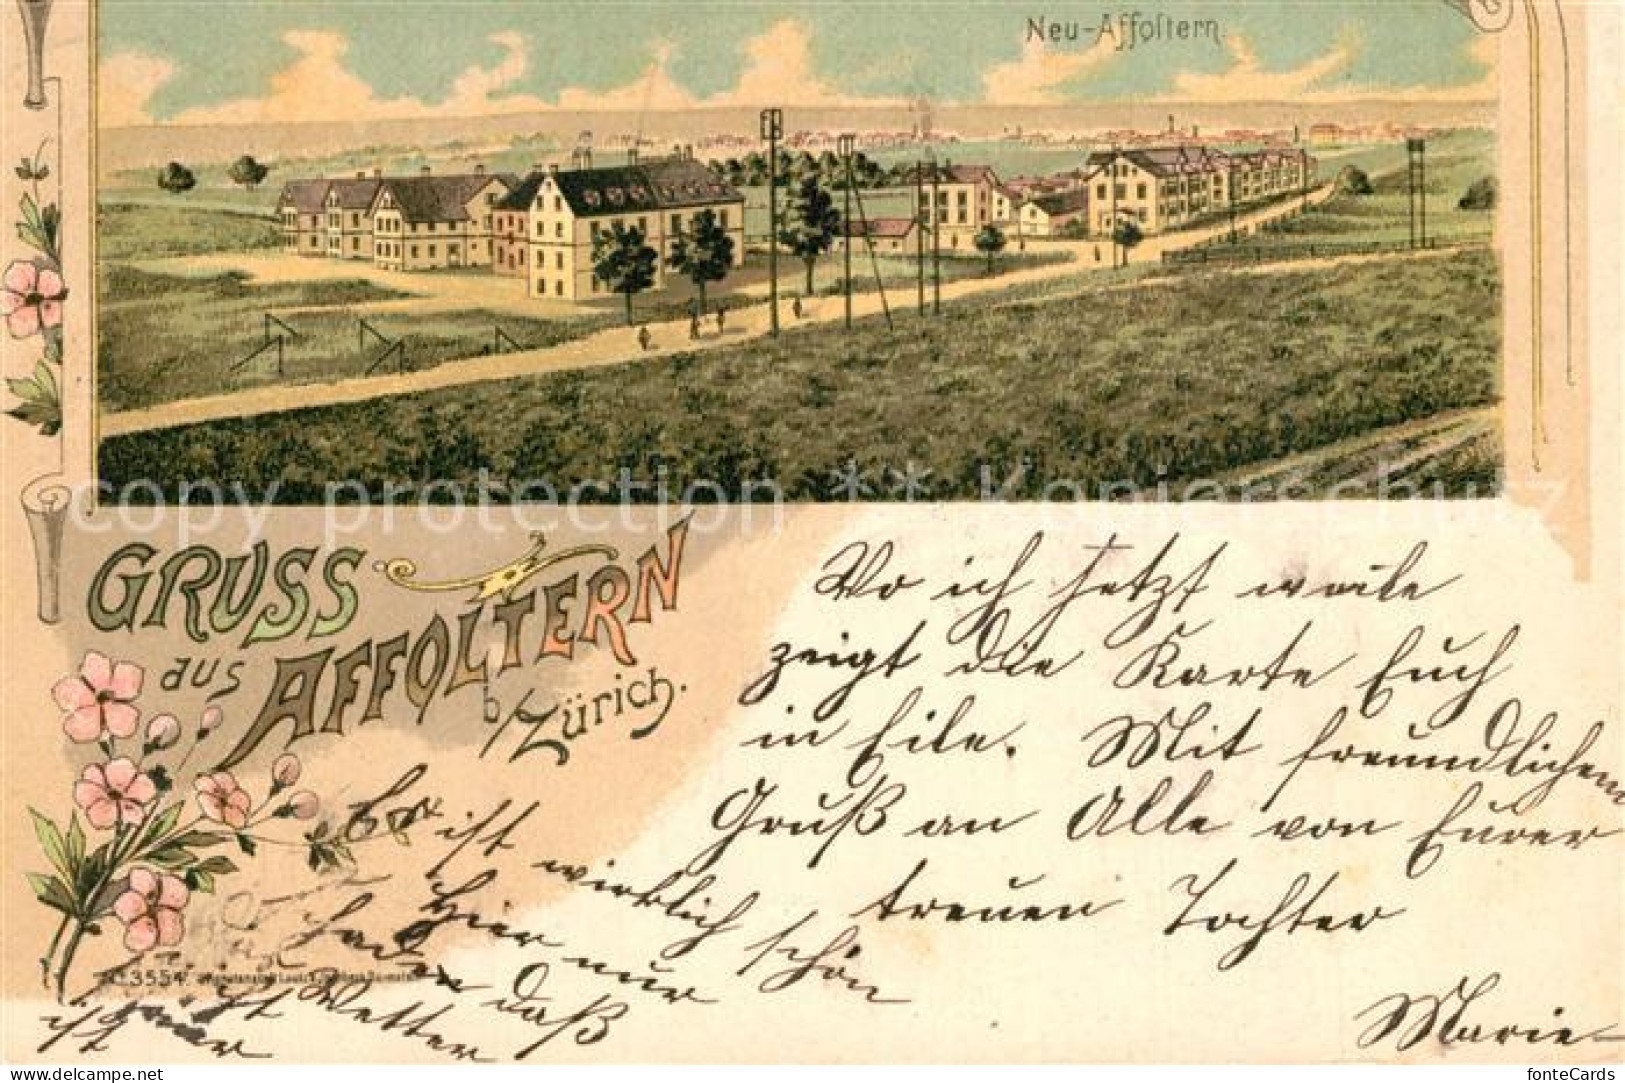 Neu-Affoltern.
copy protection ** Kopierschutz
GRUSS
aus AFFOLTERN
b/Zürich.
Wo ich jetzt weile
zeigt die Karte Euch
in Eile. Mit freundlichem
Gruß an Alle von Eurer
treuen Tochter
Marie
Es ist wirklich schön
Hier nur
schaden daß
Wetter
ist
No. 3554.
delcampe.net
fonteCards